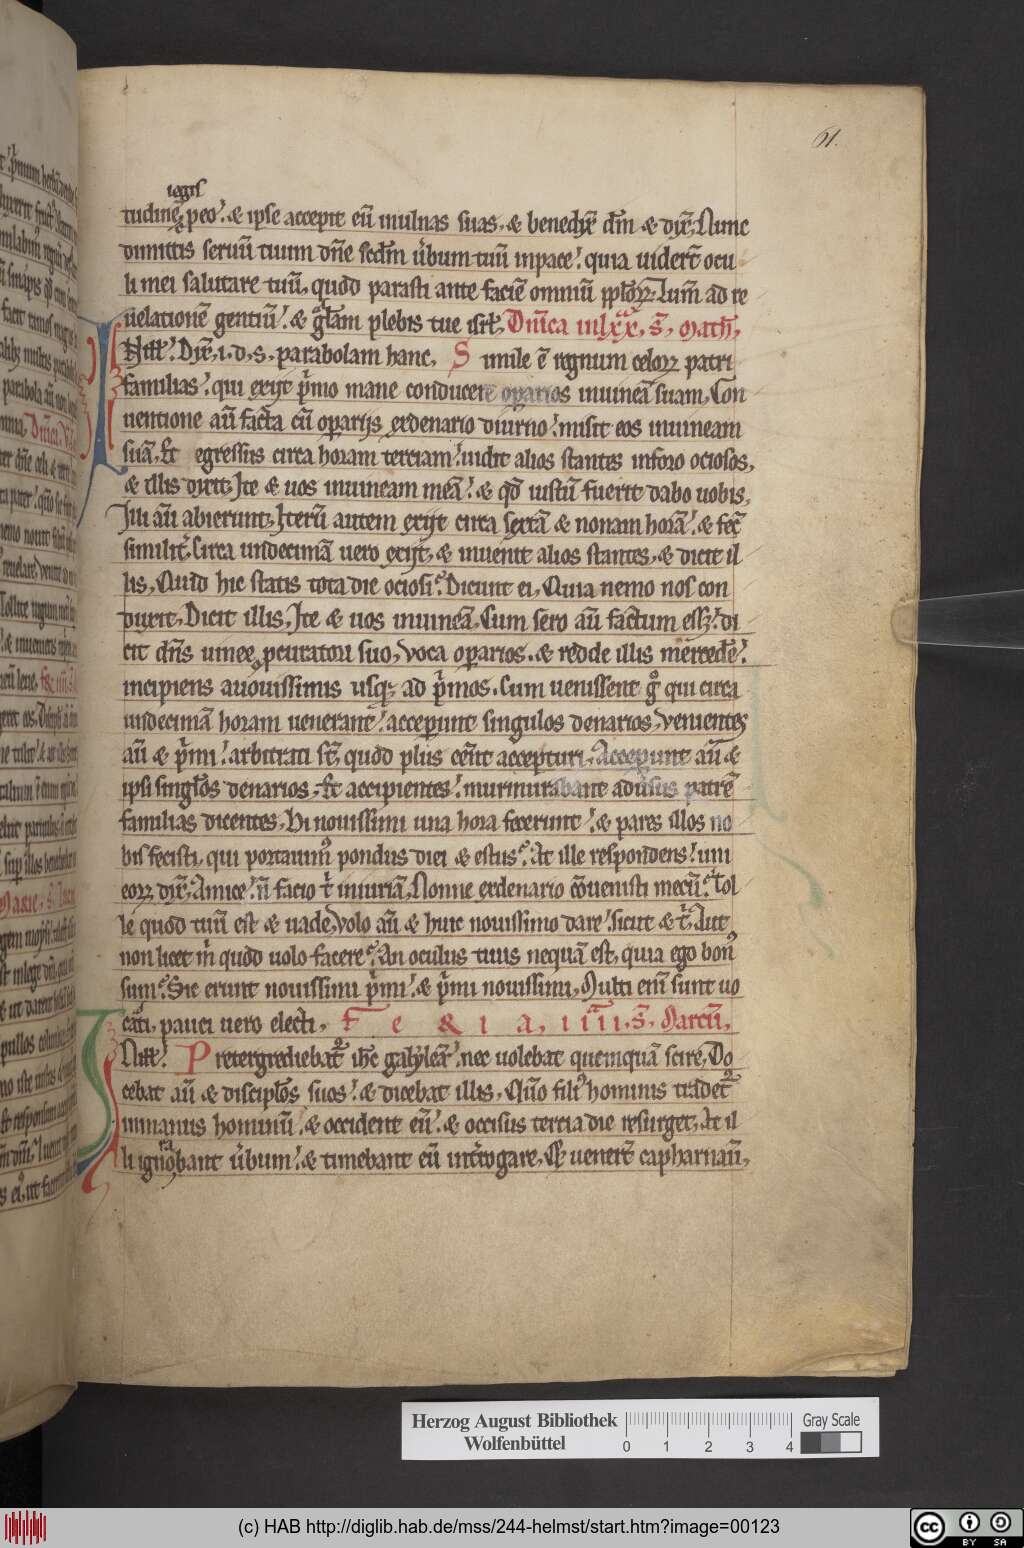 61.
legis
tudinē peo. & ipse accepit eū inulnas suas. & benedix̄ dm̄ & dix̄. Nunc
dimittis seruū tuum dn̄e scd̄m u̇bum tuū inpace. quia uider̄t ocu
li mei salutare tuū, quod parasti ante faciē omniū ppl̄oꝝ. Lum̄ ad re
uelationē gentiū. & gl̄am plebis tue isrl̄. Dn̄ica inlxx. s̄. math̄.
N ill̄. Dix̄. i. d. s. parabolam hanc. Simile ē regnum celoꝝ patri
familias. qui exijt p̍mo mane conducere oꝑarios inuineā suam. Con
uentione aū facta cū oꝑarijs exdenario diurno. misit eos inuineam
suā. Et egressus circa horam terciam. uidit alios stantes inforo ociosos.
& illis dixit. Ite & uos inuineam meā. & qd̄ iustū fuerit dabo uobis.
Illi aū abierunt. Iterū autem exijt circa sextā & nonam horā. & fec̄
similit̄. Circa undecimā uero exijt. & inuenit alios stantes. & dicit il
lis. Quid hic statis tota die ociosi. Dicunt ei. Quia nemo nos con
duxit. Dicit illis. Ite & uos inuineā. Cum sero aū factum ess&. di
cit dn̄s uinee ꝓcuratori suo. Voca oꝑarios. & redde illis mercedē.
incipiens anouissimis usqꝫ ad p̍mos. Cum uenissent gͦ qui circa
undecimā horam uenerant. acceꝑunt singulos denarios. Venientes
aū & p̍mi. arbitrati st̄. quod plus eēnt accepturi. Acceꝑunt aū &
ipsi singl̄os denarios. Et accipientes. murmurabant adu̇sus patrē
familias dicentes. Hi nouissimi una hora fecerunt. & pares illos no
bis fecisti. qui portauimꝰ pondus diei & estus. At ille respondens. uni
eoꝝ dix̄. Amice. n̄ facio t̍ iniuriā. Nonne exdenario cōuenisti mecū. Tol
le quod tuū est & uade. Volo aū & huic nouissimo dare. sicut & t̍. Aut
non licet m̍ quod uolo facere. An oculus tuus nequā est. quia ego bonꝰ
sum. Sic erunt nouissimi p̍mi. & p̍mi nouissimi. Multi eni̅ sunt uo
cati. pauci uero electi. Feria. iiii. s̄. Marcū.
N ill̄. Pretergrediebat̄ ih̄c galyleā. nec uolebat quemquā scire. Do
cebat aū & discipl̄os suos. & dicebat illis. Qm̄ filiꝰ hominis tradet̄
inmanus hominū. & occident eū. & occisus tercia die resurget. At il
li ignorabant u̇bum. & timebant eū int̍rogare. Et uener̄t capharnaū.
Herzog August Bibliothek
Wolfenbüttel
0 1 2 3 4
Gray Scale
(c) HAB http://diglib.hab.de/mss/244-helmst/start.htm?image=00123
cc BY SA